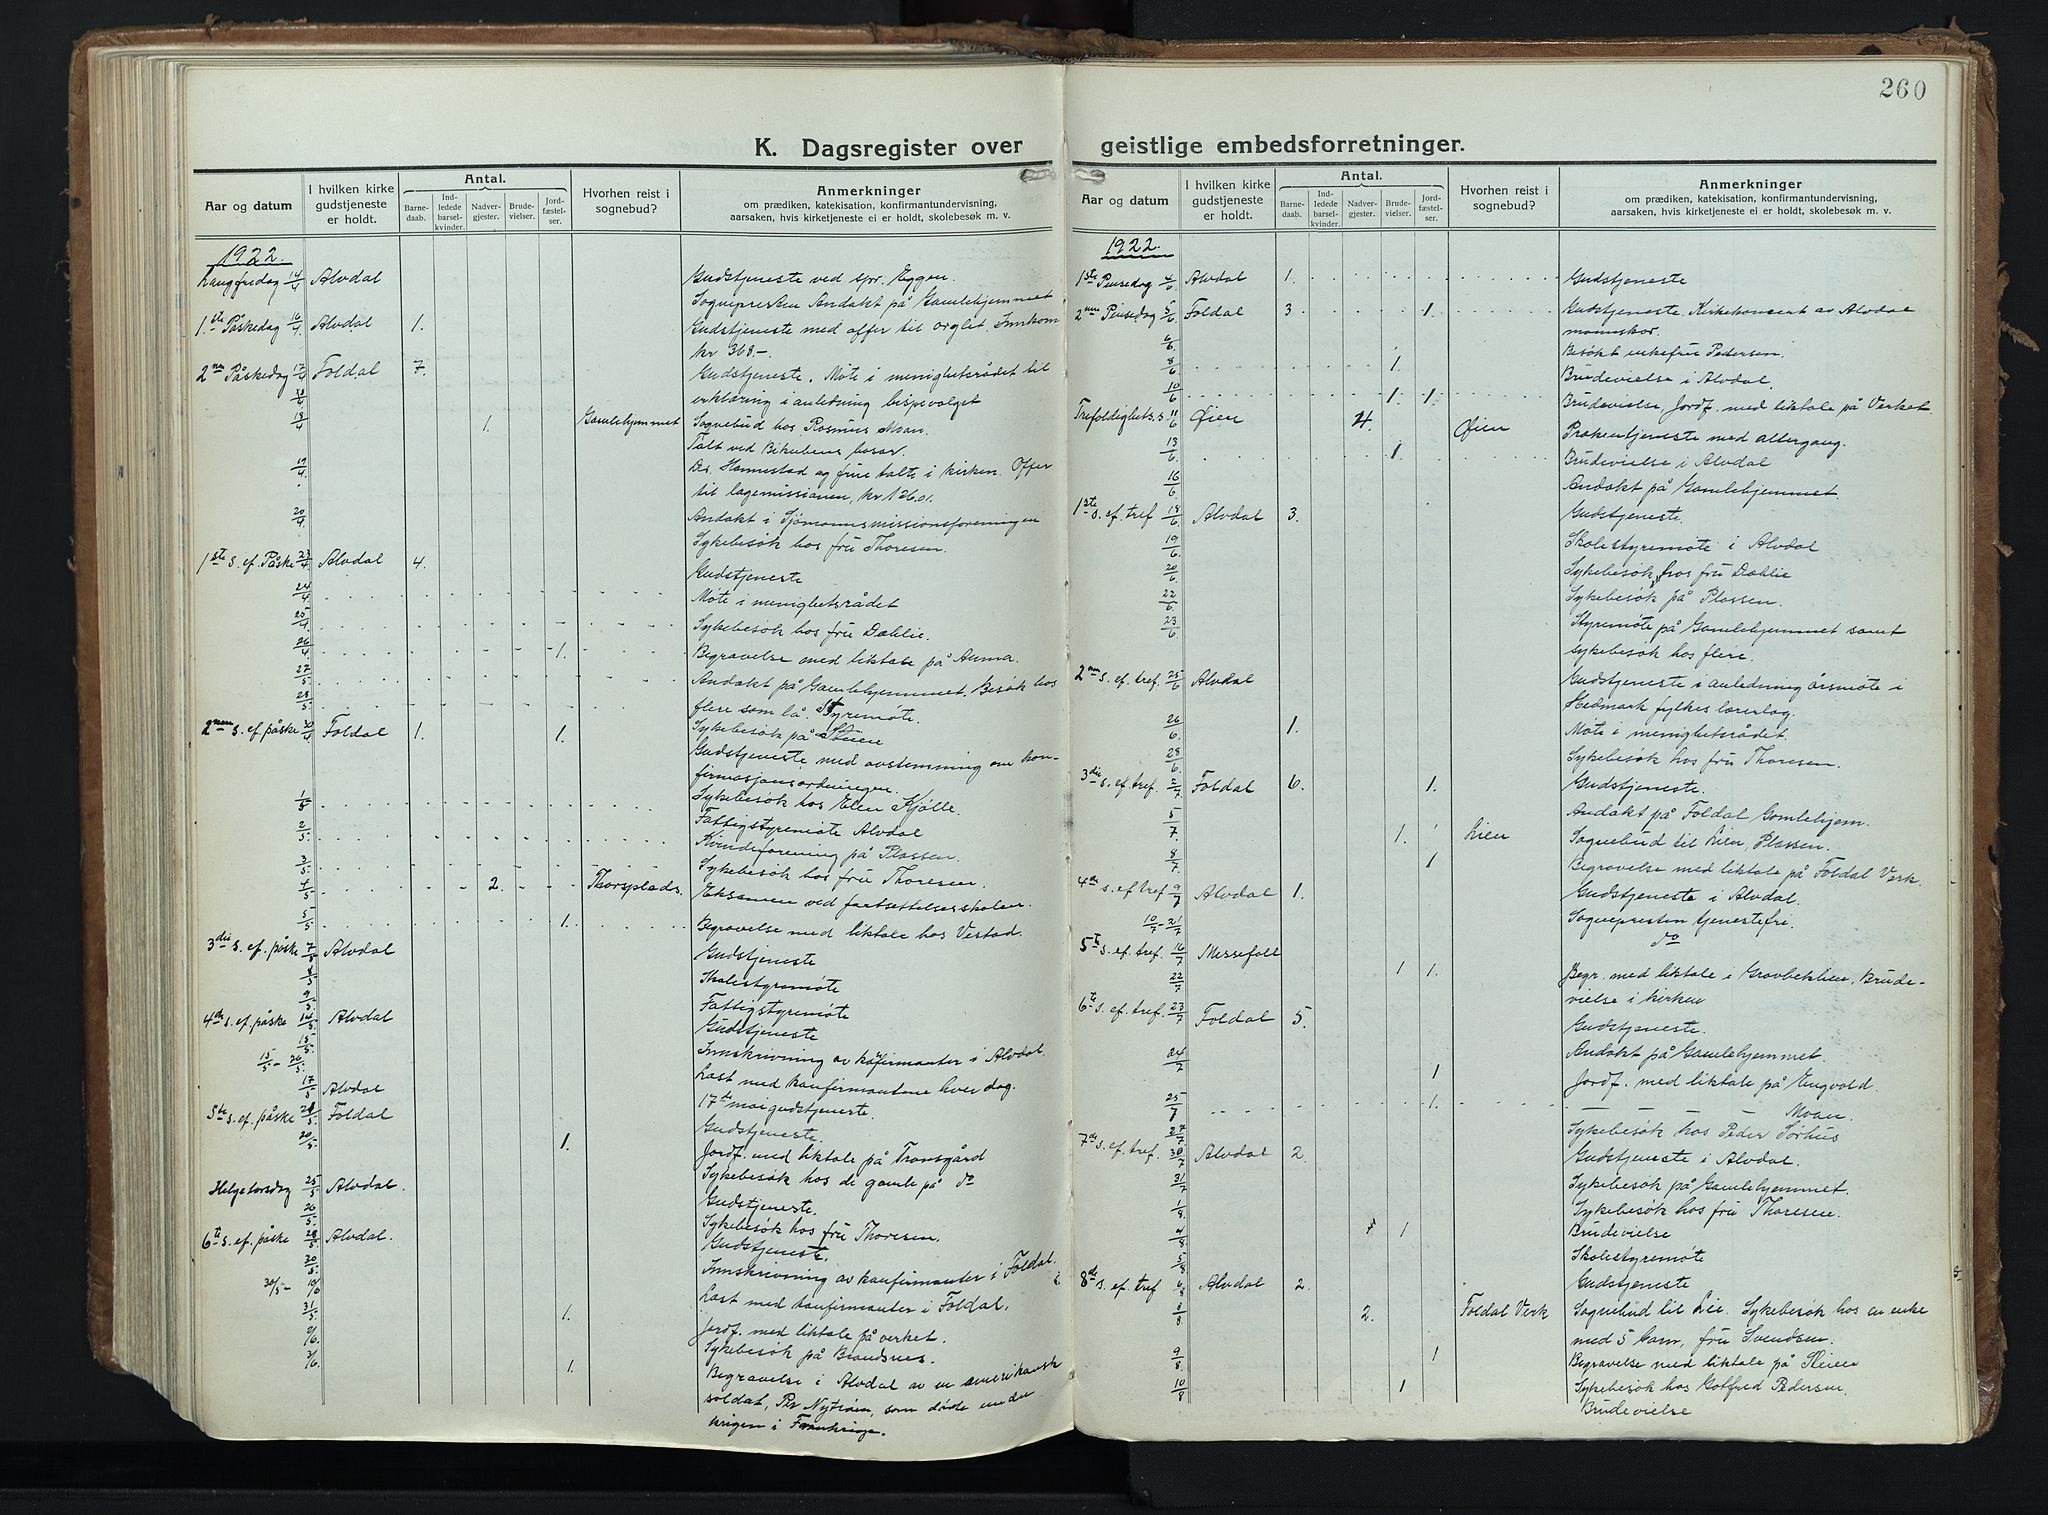 260
K. Dagsregister over geistlige embedsforretninger.
Aar og datum
I hvilken kirke gudstjeneste er holdt.
Antal.
Barne-daab.
Ind-ledede barsel-kvinder.
Nadver-gjester.
Brude-vielser.
Jord-fæstel-ser.
Hvorhen reist i sognebud?
Anmerkninger
om prædiken, katekisation, konfirmantundervisning,
aarsaken, hvis kirketjeneste ei er holdt, skolebesøk m. v.
1922.
Langfredag 14/4 Alvdal Gudstjeneste ved spr. Eggen.
Sognepresten Andakt på Gamlehjemmet
1.ste Påskedag 16/4 Alvdal 1. Gudstjeneste med offer til orglet. Innkom
kr 368.-
2nen Påskedag 17/4 Foldal 7. Gudstjeneste. Møte i menighetsrådet til
erklæring i anledning bispevalget
18/4 1. Gamlehjemmet Sognebud hos Rasmus Moan.
Talt ved Bikubens basar.
19/4 Hannestad og frue talte i kirken. Offer
til lagemissionen, kr 126.01.
20/4 Andakt i Sjømannsmissionsforeningen
Sykebesøk hos fru Thoresen.
1ste s. ef. Påske 23/4 Alvdal 4. Gudstjeneste
24/4 Møte i menighetsrådet
25/4 Sykebesøk hos fru Dæhlie.
26/4 1. Begravelse med liktale på Auma.
27/5 Andakt på Gamlehjemmet. Besøk hos
28/5 flere som lå. Styremøte.
Sykebesøk på Steien
2nen s. ef. påske 30/4 Foldal 1. 1. Gudstjeneste med avstemning om kon-
firmasjonsordningen.
1/5 Sykebesøk hos Elen Kjølle.
2/5 Fattigstyremøte Alvdal
Kvindeforening på Plassen.
3/5 Sykebesøk hos fru Thoresen.
4/5 2. Thorsplads. Eksamen ved fortsettelsesskolen.
5/5 1. Begravelse med liktale hos Vestad.
3die s. ef. påske 7/5 Alvdal Gudstjeneste
8/5 Skolestyremøte
9/5 Fattigstyremøte
4de s. ef. påske 14/5 Alvdal Gudstjeneste
15/5 Innskrivning av konfirmanter i Alvdal.
15/5 - 26/5 Lest med konfirmantene hver dag.
17/5 Alvdal 17te mai gudstjeneste.
5te s. ef. påske 21/5 Foldal Gudstjeneste.
20/5 1. Jordf. med liktale på Tronsgård
Sykebesøk hos de gamle på do
Helgetorsdag 25/5 Alvdal. Gudstjeneste.
26/5 Sykebesøk hos fru Thoresen.
6te s. ef. påske 28/5 Alvdal. Gudstjeneste.
30/5 Innskrivning av konfirmanter i Foldal.
30/5 - 10/6 Lest med konfirmanter i Foldal.
31/5 1. Jordf. med liktale på verket.
2/6 Sykebesøk på Brandsnes.
3/6 1. Begravelse i Alvdal av en amerikansk
soldat, Per Nytrøen, som døde under
krigen i Frankrige.
1922.
1ste Pinsedag 4/6 Alvdal 1. Gudstjeneste
2nen Pinsedag 5/6 Foldal 3. 1. Gudstjeneste. Kirkekoncert av Alvdal
mannskor.
6/6 Besøkt enkefru Pedersen.
8/6 1. Brudevielse i Alvdal.
10/6 1. 1. Brudevielse, Jordf. med liktale på Verket.
Trefoldighets.s. 11/6 Øien 4. Øien Prekentjeneste med altergang.
13/6 1. Brudevielse i Alvdal
16/6 Andakt på Gamlehjemmet
1ste s. ef. tref 18/6 Alvdal 3. Gudstjeneste.
19/6 Skolestyremøte i Alvdal
20/6 Sykebesøk hos fru Dæhlie
22/6 Sykebesøk på Plassen.
23/6 Styremøte på Gamlehjemmet samt
sykebesøk hos flere.
2nen s. ef. tref. 25/6 Alvdal Gudstjeneste i anledning årsmøte i
Hedmark fylkes lærerlag.
26/6 1. Møte i menighetsrådet.
28/6 Sykebesøk hos fru Thoresen.
3die s. ef. tref. 2/7 Foldal 6. 1. Gudstjeneste.
5/7 Andakt på Foldal Gamlehjem.
1. Lien Sognebud til Lien, Plassen.
8/7 1 Begravelse med liktale på Foldal Verk.
4de s. ef tref 9/7 Alvdal 1. Gudstjeneste i Alvdal.
10/7 - 21/7 Sognepresten tjenestefri.
5te s. ef. tref. 16/7 Messefall do
22/7 1 1. Begr. med liktale i Gravbeklien. Brude-
vielse i kirken
6te s. ef. tref. 23/7 Foldal 5. Gudstjeneste.
24/7 Andakt på Gamlehjemmet.
1 Jordf. med liktale på Engvold.
25/7 1. Moan.
27/7 Sykebesøk hos Peder Sørhus
7de s. ef. tref. 30/7 Alvdal 2. Gudstjeneste i Alvdal.
31/7 Sykebesøk på Gamlehjemmet.
1/8 Sykebesøk hos fru Thoresen.
4/8 1 Brudevielse
5/8 Skolestyremøte
8de s. ef. tref 6/8 Alvdal 2. Gudstjeneste
8/8 2. Foldal Verk Sognebud til Lie. Sykebesøk hos en enke
med 5 barn, fru Svendsen.
9/8 1 Begravelse med liktale på Steien
10/8 1 Sykebesøk hos Gotfred Pedersen.
Brudevielse